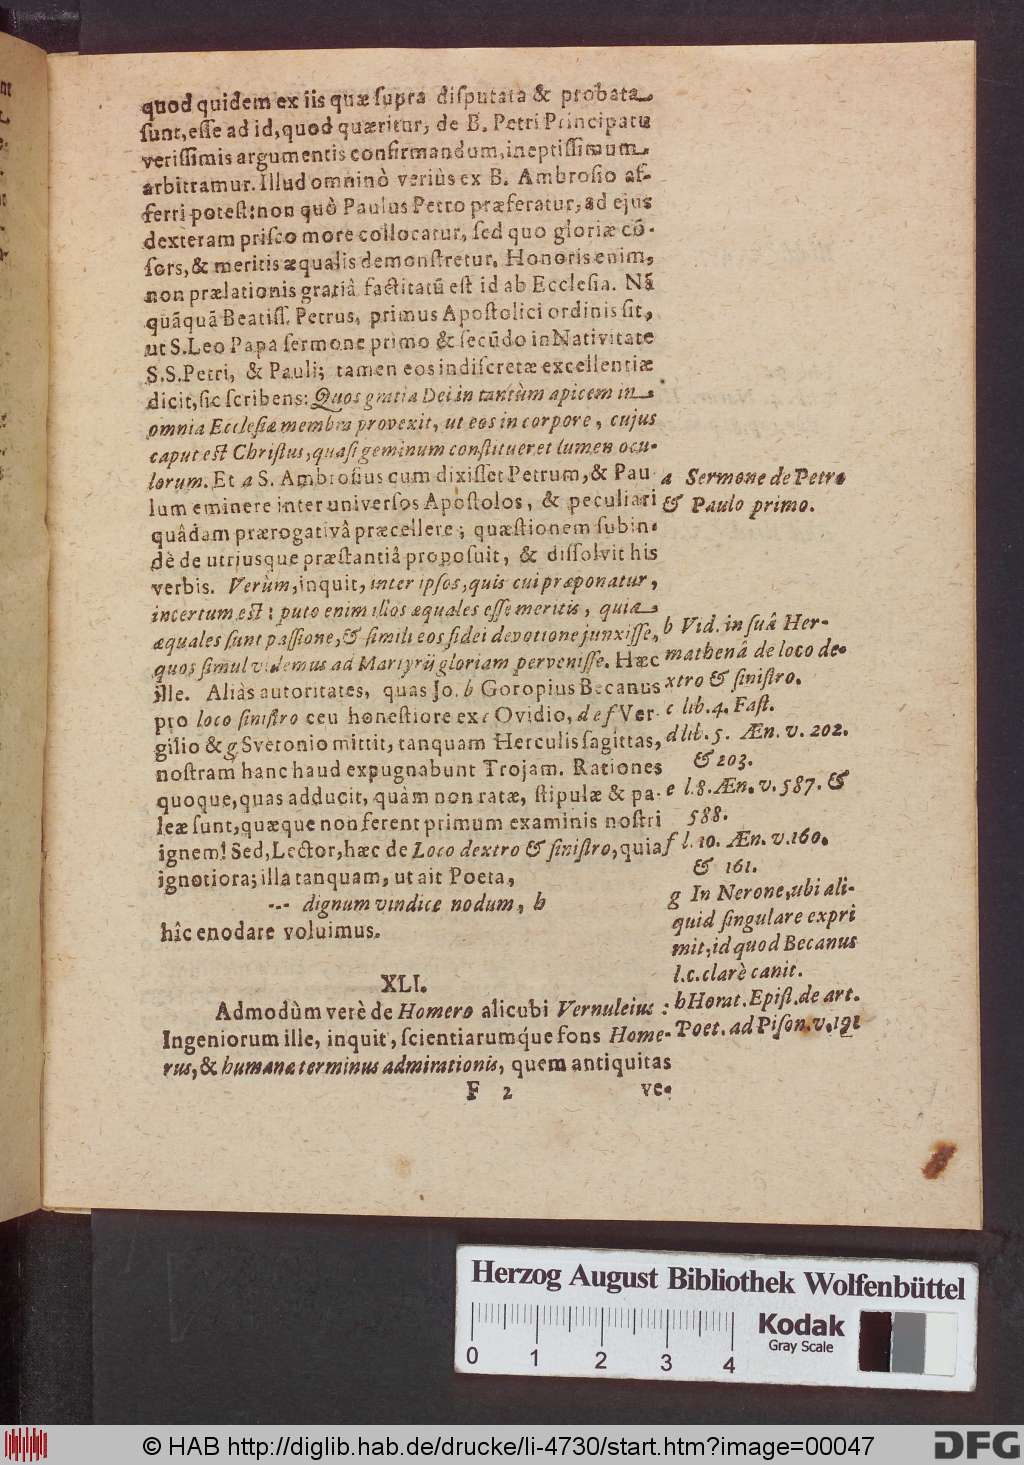 quod quidem ex iis quæ ſupra diſputata & probata
ſunt, eſſe ad id, quod quæritur, de B. Petri Principatu
veriſſimis argumentis confirmandum, ineptiſſimum
arbitramur. Illud omninò veriùs ex B. Ambroſio af-
ferri poteſt: non quò Paulus Petro præferatur, ad ejus
dexteram priſco more collocatur, ſed quo gloriæ cō-
ſors, & meritis æqualis demonſtretur. Honoris enim,
non prælationis gratiâ factitatū eſt id ab Eccleſia. Nā
quāquā Beatiſſ. Petrus, primus Apoſtolici ordinis ſit,
ut S. Leo Papa ſermone primo & ſecūdo in Nativitate
S.S. Petri, & Pauli; tamen eos indiſcretæ excellentiæ
dicit, ſic ſcribens: Quos gratia Dei in tantùm apicem in
omnia Eccleſiæ membra provexit, ut eos in corpore, cujus
caput eſt Chriſtus, quaſi geminum conſtitueret lumen ocu-
lorum. Et a S. Ambroſius cum dixiſſet Petrum, & Pau-
lum eminere inter univerſos Apoſtolos, & peculiari
quâdam prærogativâ præcellere; quæſtionem ſubin-
dè de utriusque præſtantiâ propoſuit, & diſſolvit his
verbis. Verùm, inquit, inter ipſos, quis cui præponatur,
incertum eſt: puto enim illos æquales eſſe meritis, quia
æquales ſunt paſſione, & ſimili eos fidei devotione junxiſſe,
quos ſimul videmus ad Martyrij gloriam perveniſſe. Hæc
ille. Aliàs autoritates, quas Jo. b Goropius Becanus
pro loco ſiniſtro ceu honeſtiore ex c Ovidio, d e f Ver-
gilio & g Svetonio mittit, tanquam Herculis ſagittas,
noſtram hanc haud expugnabunt Trojam. Rationes
quoque, quas adducit, quàm non ratæ, ſtipulæ & pa-
leæ ſunt, quæque non ferent primum examinis noſtri
ignem! Sed, Lector, hæc de Loco dextro & ſiniſtro, quia
ignotiora; illa tanquam, ut ait Poeta,
--- dignum vindice nodum, h
hîc enodare voluimus.
XLI.
Admodùm verè de Homero alicubi Vernuleius:
Ingeniorum ille, inquit, ſcientiarumq́ue fons Home-
rus, & humanæ terminus admirationis, quem antiquitas
F 2 ve-
a Sermone de Petro
& Paulo primo.
b Vid. in ſuâ Her-
mathenâ de loco de-
xtro & ſiniſtro.
c lib. 4. Faſt.
d lib. 5. Æn. v. 202.
& 203.
e l. 8. Æn. v. 587. &
588.
f l. 10. Æn. v. 160.
& 161.
g In Nerone, ubi ali-
quid ſingulare expri
mit, id quod Becanus
l.c. clarè canit.
h Horat. Epiſt. de art.
Poet. ad Piſon. v. 191
Herzog August Bibliothek Wolfenbüttel
0 1 2 3 4
Kodak
Gray Scale
© HAB http://diglib.hab.de/drucke/li-4730/start.htm?image=00047
DFG